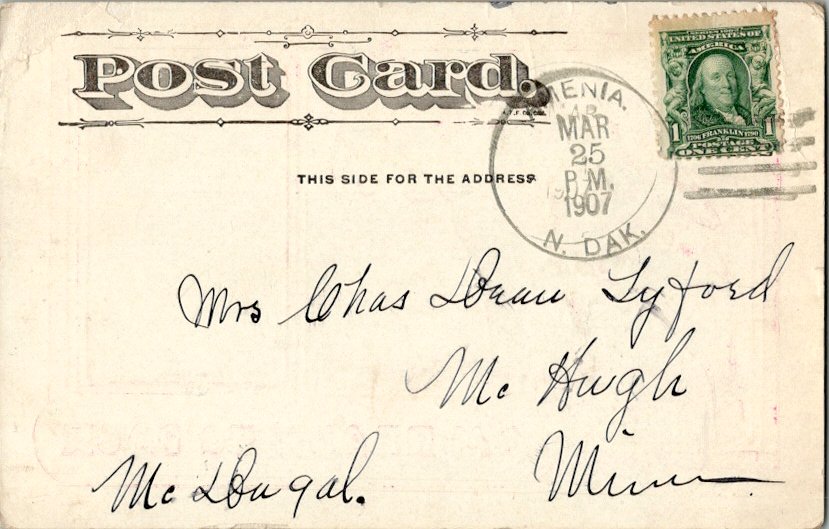 Post Card.
THIS SIDE FOR THE ADDRESS
SERIES 1902
UNITED STATES OF
AMERICA
1706 FRANKLIN 1790
1 1
POSTAGE
ONE CENT
MENIA.
MAR
25
P.M.
1907
N. DAK.
Mrs Chas Dean Tyford
Mc Hugh
Minn
Mc Dugal.